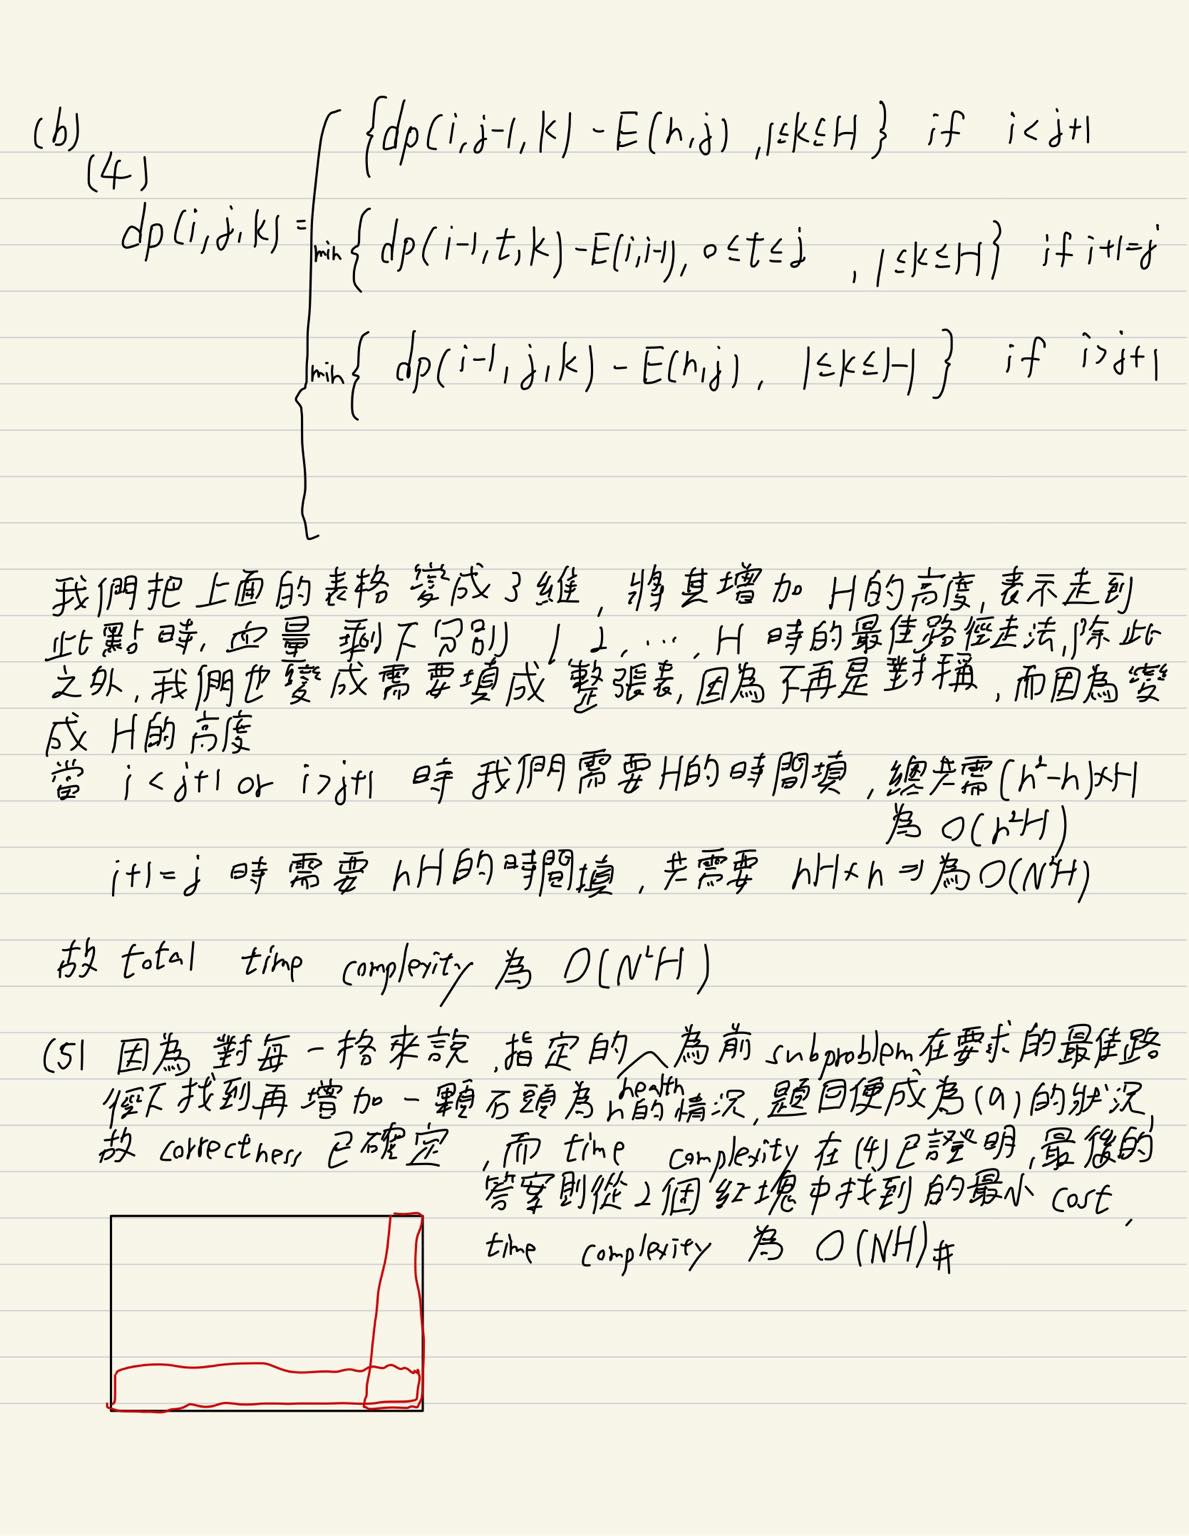 (b)
(4)
{dp(i,j-1,k) - E(n,j) ,1≤k≤H } if i<j+1
dp(i,j,k) = min{ dp(i-1,t,k) -E(i,i-1), 0≤t≤j , 1≤k≤H} if i+1=j
min{ dp(i-1,j,k) - E(n,j), 1≤k≤H } if i>j+1
我們把上面的表格變成3維,將其增加 H的高度,表示走到
此點時,血量剩下分別 1,2,...,H 時的最佳路徑走法,除此
之外,我們也變成需要填成整張表,因為不再是對稱,而因為變
成 H的高度
當 i<j+1 or i>j+1 時我們需要H的時間填,總共需(n²-n)×H
為 O(n²H)
i+1=j 時需要 nH的時間填,共需要 nH×n ⇒為O(N²H)
故 total time complexity 為 O(N²H)
(5) 因為對每一格來說,指定的health為前 subproblem在要求的最佳路
徑下找到再增加一顆石頭為n的情況,題目便成為(a)的狀況,
故 correctness 已確定 ,而 time complexity 在(4)已證明,最後的
答案則從2個紅塊中找到的最小 cost,
time complexity 為 O(NH)#